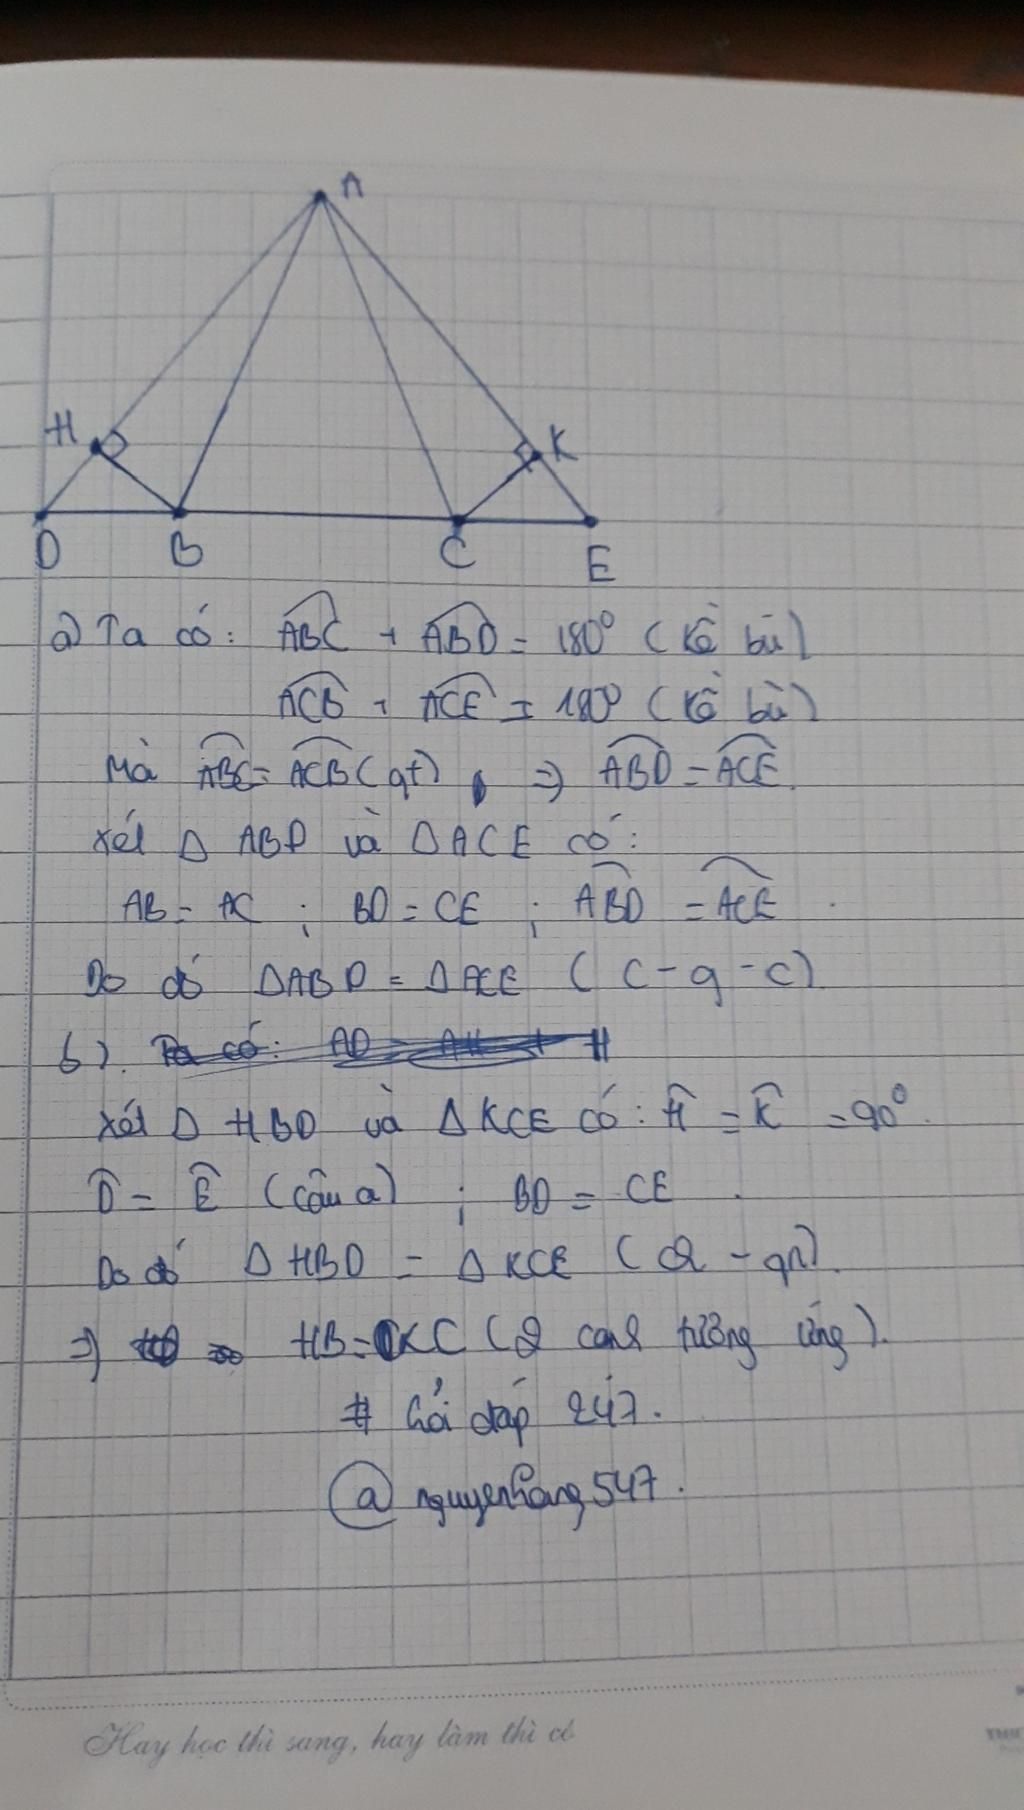 A
H
K
D
B
C
E
a) Ta có: ABC + ABD = 180° (kề bù)
ACB + ACE = 180° (kề bù)
Mà ABC = ACB (gt) => ABD = ACE.
Xét Δ ABD và Δ ACE có:
AB = AC ; BD = CE ; ABD = ACE.
Do đó ΔABD = ΔACE (c-g-c)
b).
Xét Δ HBD và Δ KCE có: Ĥ = K̂ = 90°.
D̂ = Ê (câu a) ; BD = CE.
Do đó Δ HBD = Δ KCE (ch - gn).
=> HB = KC (2 cạnh tương ứng).
# hỏi đáp 247.
@ nguyenhoang547.
Hay học thì sang, hay làm thì có